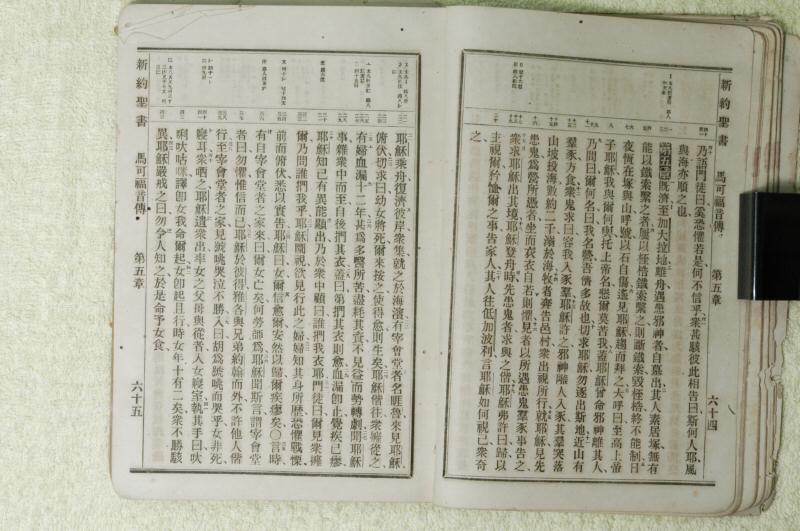 新約聖書 馬可福音傳 第五章 六十四
乃語門徒曰奚恐懼若是何不信乎衆甚駭彼此相告曰斯何人耶風
與海亦順之也
第五章既濟至加大拉地離舟遇患邪神者自墓出其人素居塚無有
能以鐵索繫之者屢以桎梏鐵索繫之則斷鐵索毀桎梏終不能制日
夜恆在塚與山呼號以石自傷遙見耶穌趨而拜之大呼曰至高上帝
子耶穌我與爾何與托上帝名懇爾莫苦我蓋耶穌曾命邪神離其人
乃問曰爾何名曰我名營吾儕多故也切求耶穌勿逐出斯地近山有
羣豕方食衆鬼求曰容我入豕羣耶穌許之邪神離人入豕其羣突落
山坡投海數約二千溺於海牧者奔告邑村衆出視所行就耶穌見先
患鬼爲營所憑者坐而衣衣自若則懼見者以所遇患鬼豕事告之
衆求耶穌出其境耶穌登舟時先患鬼者求與之偕耶穌弗許曰歸以
主視爾矜恤爾之事告家人其人往低加波利言耶穌如何視己衆奇
之
耶穌乘舟復濟彼岸衆集就之於海濱有宰會堂者名睚魯來見耶穌
俯伏切求曰幼女將死爾來按之使得愈則生矣耶穌偕往衆擁從之
有婦血漏十二年甚爲多醫所苦盡耗其資不見益而勢轉劇聞耶穌
事雜衆中而至自後捫其衣蓋曰弟捫其衣則愈血漏卽止覺疾已瘳
耶穌知已有異能顯出乃於衆中顧曰誰捫我衣耶門徒曰爾見衆擁
爾乃問誰捫我乎耶穌圜視欲見行此之婦婦知其身所歷恐懼戰慄
前而俯伏悉以實告耶穌曰女爾信愈爾安然以歸爾疾瘳矣〇言時
有自宰會堂者之家來曰爾女亡矣何勞師爲耶穌聞斯言謂宰會堂
者曰勿懼惟信而已耶穌於彼得雅各與兄弟約翰而外不許他人偕
行至宰會堂者之家見號咷哭泣不勝入曰胡爲號咷而哭乎女非死
寢耳衆哂之耶穌遣衆出率女之父母與從者入女寢室執其手曰吠
唎吠咕咪譯卽女我命爾起女卽起且行時女年十有二矣衆不勝駭
異耶穌嚴戒之曰勿令人知之於是命予女食
新約聖書 馬可福音傳 第五章 六十五